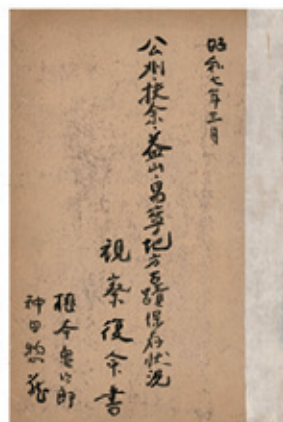 昭和七年三月
公州・扶余・益山・昌寧地方古蹟保存状況
視察復命書
榧本亀次郎
神田惣蔵